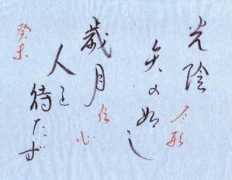 光陰
矢の如し
歳月
人を
待たず
癸未